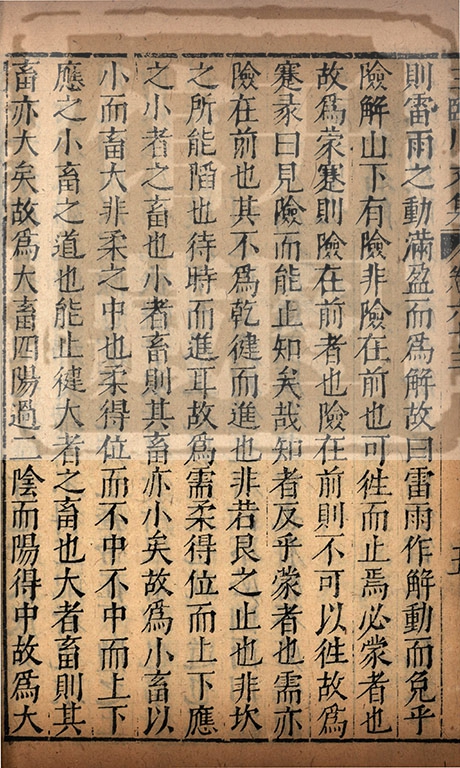 王臨川文集 卷六十三 五
則雷雨之動滿盈而爲解故曰雷雨作解動而免乎
險解山下有險非險在前也可徃而止焉必蒙者也
故爲蒙蹇則險在前者也險在前則不可以徃故爲
蹇彖曰見險而能止知矣哉知者反乎蒙者也需亦
險在前也其不爲乾徤而進也非若艮之止也非坎
之所能䧟也待時而進耳故爲需柔得位而上下應
之小者之畜也小者畜則其畜亦小矣故爲小畜以
小而畜大非柔之中也柔得位而不中不中而上下
應之小畜之道也能止徤大者之畜也大者畜則其
畜亦大矣故爲大畜四陽過二陰而陽得中故爲大